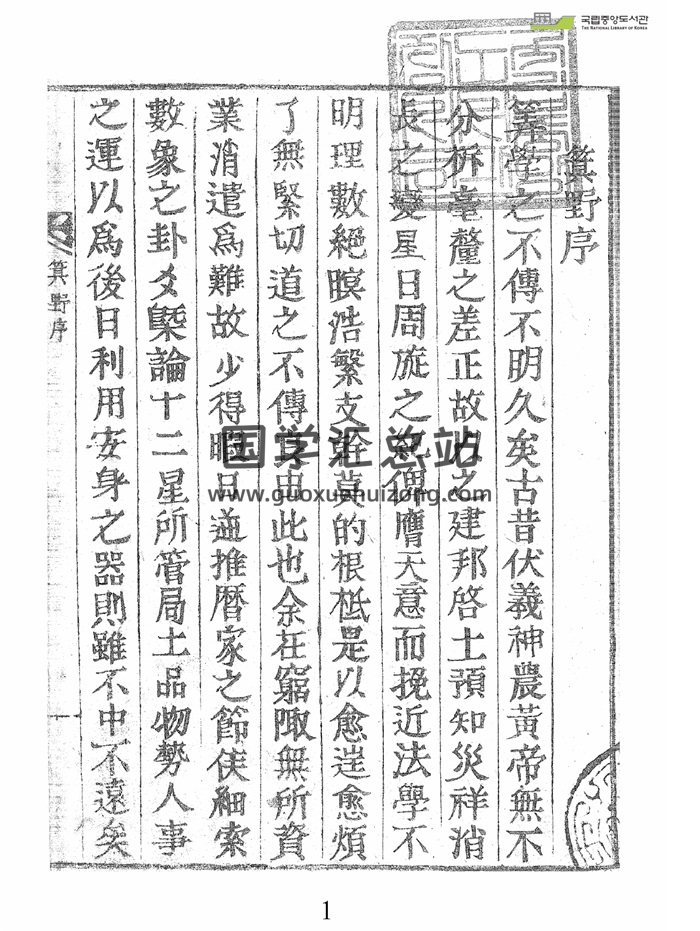 국립중앙도서관
THE NATIONAL LIBRARY OF KOREA
箕野序
筭學之不傳不明久矣古昔伏羲神農黃帝無不
分析毫釐之差正故以之建邦啓土預知災祥消
長之變星日周旋之䂓俾膺天意而挽近法學不
明理數絕瞑浩繁支幹莫的根柢是以愈迷愈煩
了無緊切道之不傳莫由此也余在窮陬無所資
業消遣爲難故少得暇日遊推曆家之節候細索
數象之卦爻槩論十二星所管局土品物勢人事
之運以爲後日利用安身之器則雖不中不遠矣
箕野序
一
国学汇总站
www.guoxuehuizong.com
1